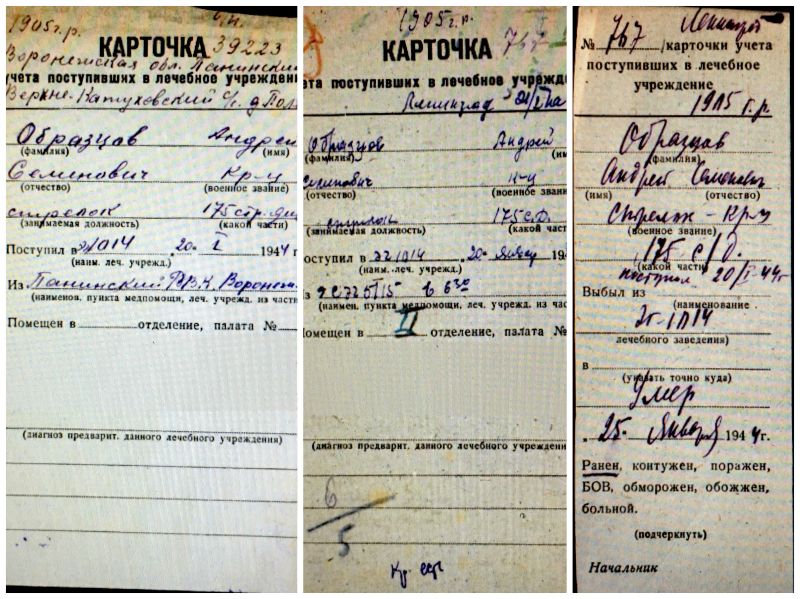 1905 г.р.
КАРТОЧКА 39223
Воронежская обл. Панинский
учета поступивших в лечебное учреждение
Верхне-Катуховский с/с. д.
Образцов Андрей
(фамилия) (имя)
Семинович Кр-ц
(отчество) (военное звание)
стрелок 175 стр. див
(занимаемая должность) (какой части)
Поступил в 1014 „20“ I 1944 г
(наим. леч. учрежд.)
Из Панинский РВК Воронеж.
(наименов. пункта медпомощи, леч. учрежд. из части
Помещен в отделение, палата №
(диагноз предварит. данного лечебного учреждения)
1905 г.р.
КАРТОЧКА 767
ета поступивших в лечебное учрежде
Ленинград
Образцов Андрей
(фамилия) (им
Семинович К-ц
(отчество) (военное звание)
стрелок 175 с.д.
(занимаемая должность) (какой части)
оступил в 1014 „20“ Январ 194
(наим. леч. учрежд.)
з в 6 30
(наимен. пункта медпомощи, леч. учрежд. из час
омещен в II отделение, палата №
(диагноз предварит. данного лечебного учреждени
6/5
Ленинград
№ 767 /карточки учета
поступивших в лечебное
учреждение
1905 г.р.
Образцов
(фамилия)
Андрей Семенович
(имя) (отчество)
Стрелок - Кр-ц
(военное звание)
175 с/д.
(какой части)
поступил 20/I 44г
Выбыл из
(наименование
Эг-1014
лечебного заведения)
в
(указать точно куда)
Умер
„25“ Января 1944 г.
Ранен, контужен, поражен,
БОВ, обморожен, обожжен,
больной.
(подчеркнуть)
Начальник